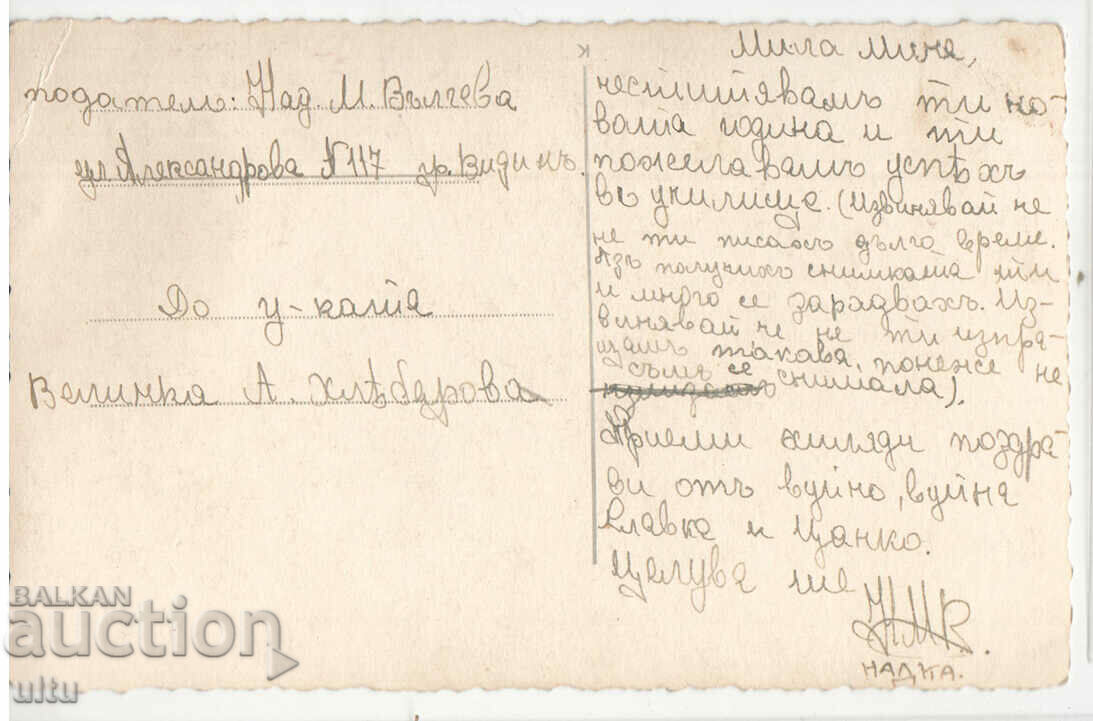 податель: Над. М. Вълчева
ул. Александрова №117 гр. Видинъ.
До у-ката
Величка А. Хлѣбарова
Мила Миче,
честитявамъ ти но-
вата година и ти
пожелавамъ успѣхъ
въ училище. (Извинявай че
не ти писахъ дълго време.
Азъ получихъ снимката ти
и много се зарадвахъ. Из-
винявай че не ти изпра-
щамъ такава, понеже не
съмъ се снимала).
Приеми хиляди поздра-
ви отъ вуйчо, вуйна
Славка и Цанко.
Целува те
НАДКА.
BALKAN
auction
ultu